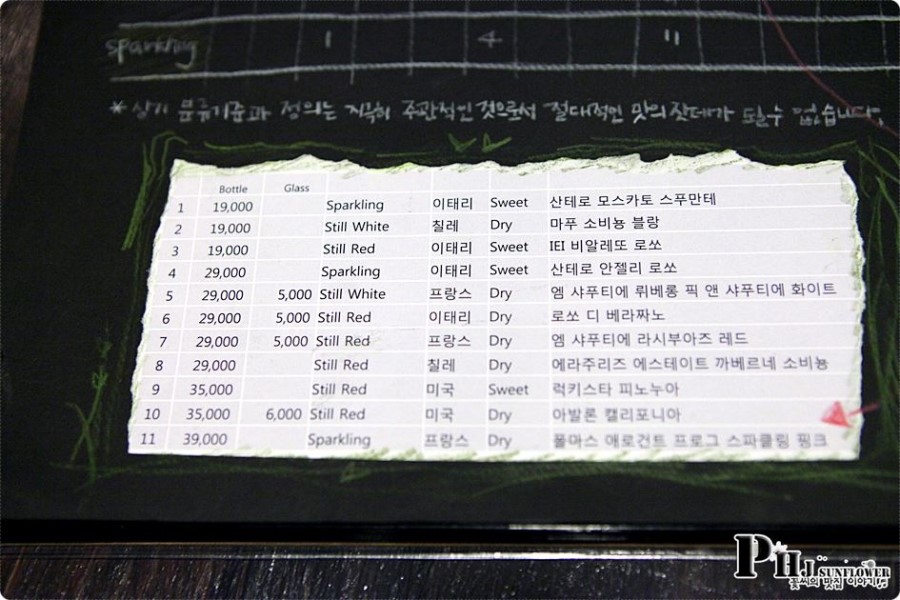 sparkling 1 4 11
*상기 분류기준과 정의는 지극히 주관적인것으로서 절대적인 맛의잣대가 될수 없습니다.
Bottle Glass
1 19,000 Sparkling 이태리 Sweet 산테로 모스카토 스푸만테
2 19,000 Still White 칠레 Dry 마푸 소비뇽 블랑
3 19,000 Still Red 이태리 Sweet IEI 비알레또 로쏘
4 29,000 Sparkling 이태리 Sweet 산테로 안젤리 로쏘
5 29,000 5,000 Still White 프랑스 Dry 엠 샤푸티에 뤼베롱 픽 앤 샤푸티에 화이트
6 29,000 5,000 Still Red 이태리 Dry 로쏘 디 베라짜노
7 29,000 5,000 Still Red 프랑스 Dry 엠 샤푸티에 라시부아즈 레드
8 29,000 Still Red 칠레 Dry 에라주리즈 에스테이트 까베르네 소비뇽
9 35,000 Still Red 미국 Sweet 럭키스타 피노누아
10 35,000 6,000 Still Red 미국 Dry 아발론 캘리포니아
11 39,000 Sparkling 프랑스 Dry 폴마스 애로건트 프로그 스파클링 핑크
PHJ SUNFLOWER
꽃씨의 맛집 이야기